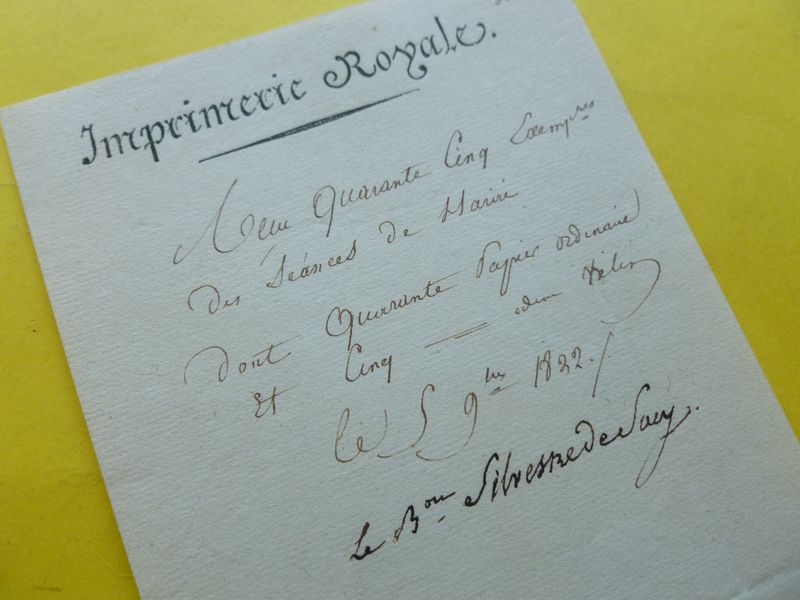 Imprimerie Royale.
Reçu Quarante Cinq Exempres
des Séances de Hariri
dont Quarante Papier ordinaire
Et Cinq — idem Vélin
le 5 9bre 1822.
Le Bon Silvestre de Sacy.